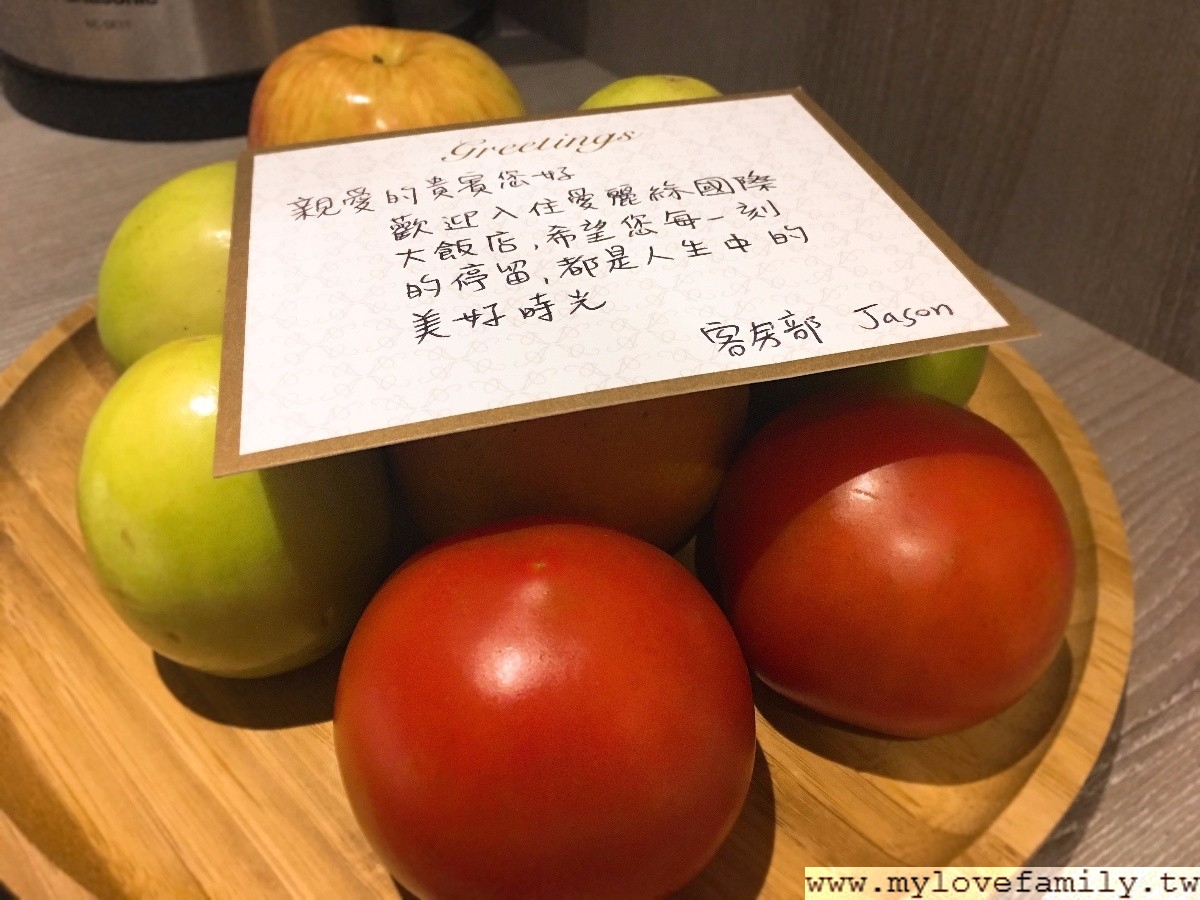 Greetings
親愛的貴賓您好
歡迎入住愛麗絲國際
大飯店,希望您每一刻
的停留,都是人生中的
美好時光
客房部 Jason
www.mylovefamily.tw